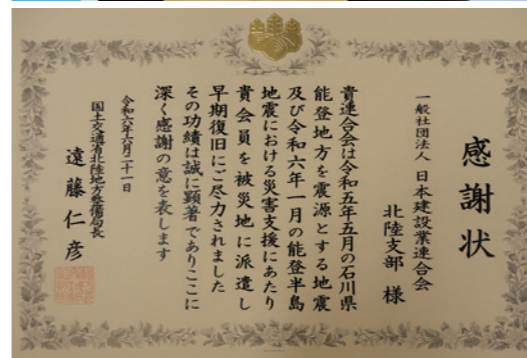 感謝状
一般社団法人 日本建設業連合会
北陸支部 様
貴連合会は令和五年五月の石川県
能登地方を震源とする地震
及び令和六年一月の能登半島
地震における災害支援にあたり
貴会員を被災地に派遣し
早期復旧にご尽力されました
その功績は誠に顕著でありここに
深く感謝の意を表します
令和六年六月二十一日
国土交通省北陸地方整備局長
遠藤仁彦